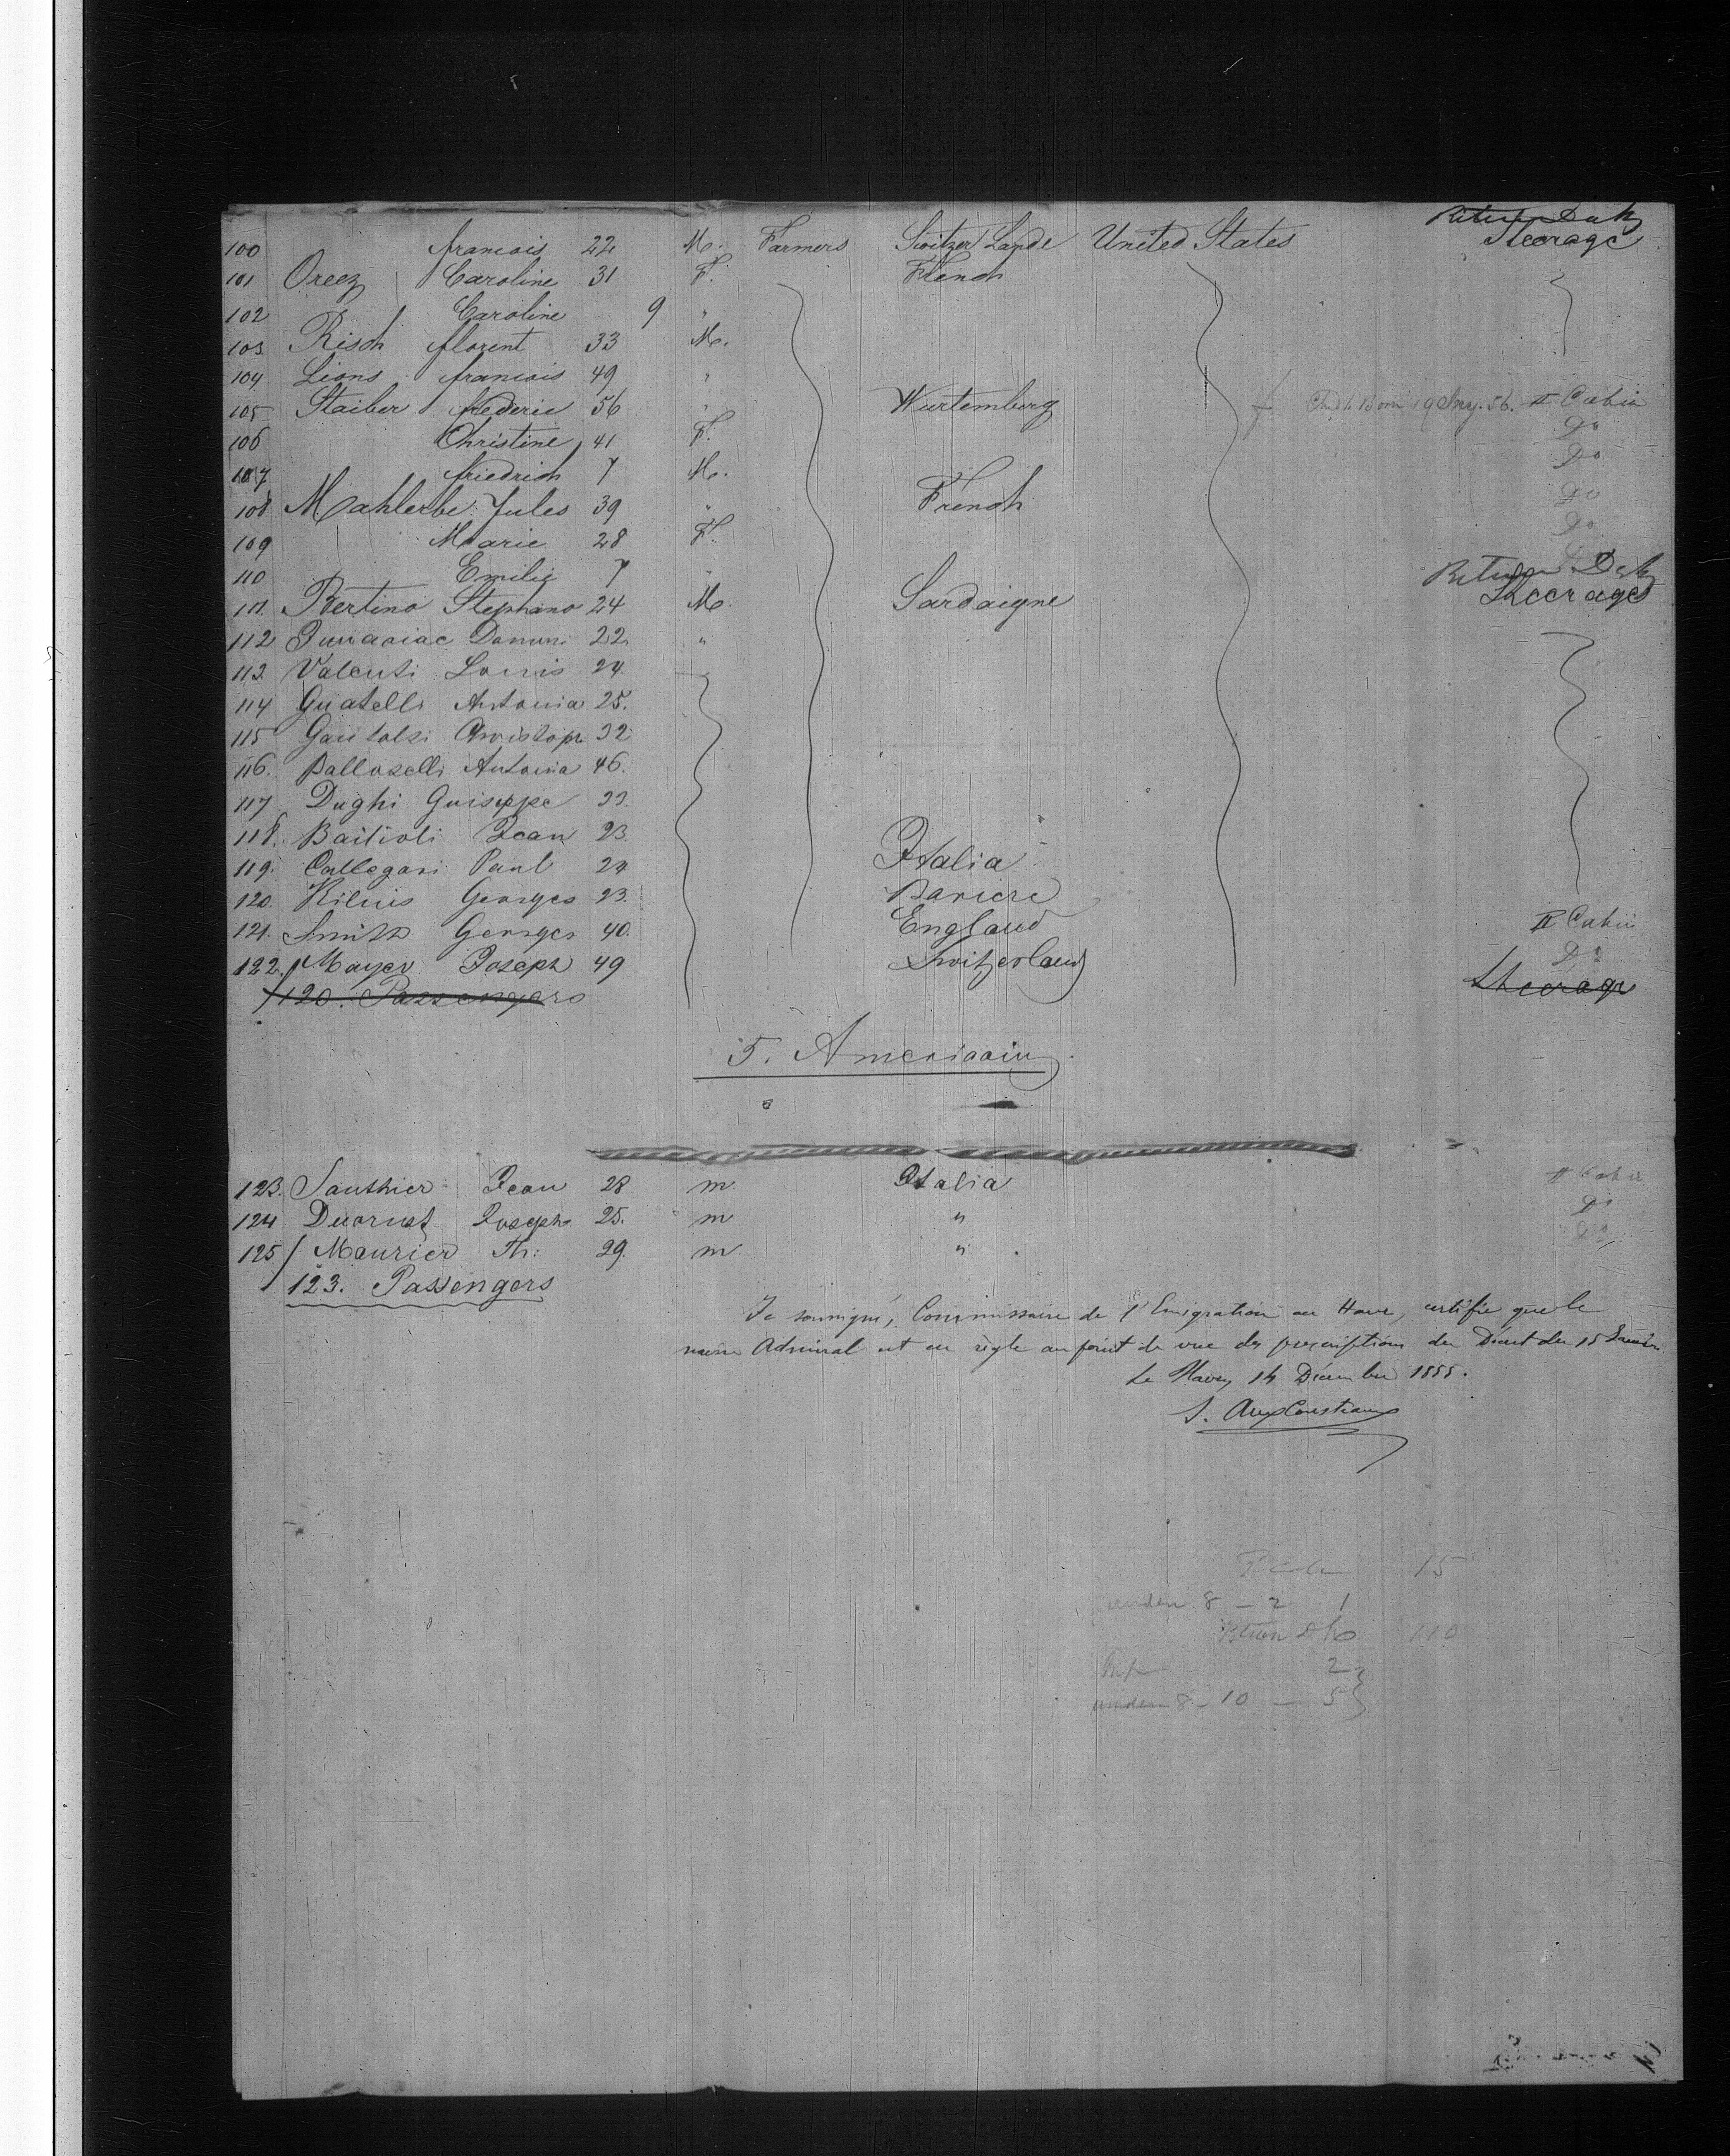 100 francois 22 M. Farmers Switzer Lande United States Steerage
101 Oreez Caroline 31 F. French
102 Caroline 9 "
103 Risch florent 33 M.
104 Lions francois 49 "
105 Staiber frederic 56 " Wurtemberg Child Born 19 56. II Cabin
106 Christine 41 F. Do
107 friedrich 7 M. Do
108 Mahlerbe Jules 39 " French Do
109 Marie 28 F. Do
110 Emilie 7 "
111. Bertino Stephano 24 M. Sardaigne Steerage
112 22 "
113. Valenti Louis 24.
114 Guatelli Antonia 25.
115 Christopr 32
116. Balloselli Antonia 46.
117 Dughi Guiseppe 33.
118. Baitioli Jean 23. "
119. Callegari Paul 24 Italia
120. Kilius Georges 23. Baviere
121. Smith Georges 40. England II Cabin
122. Mayer Joseph 49 Switzerland Do
120. Passengers Steerage
5. Americain
123. Sauthier Jean 28 m. Italia II Cabin
124 Joseph 25. m " Do
125 Maurier Th: 29. m " Do
123. Passengers
Je soussigné, Commissaire de l'Emigration au Havre, certifie que le
navire Admiral est en règle au point de vue des prescriptions du Décret du 15 Janvier
Le Havre, 14 Décembre 1855.
15
under 8 – 2 1
110
2
under 8 – 10 – 5